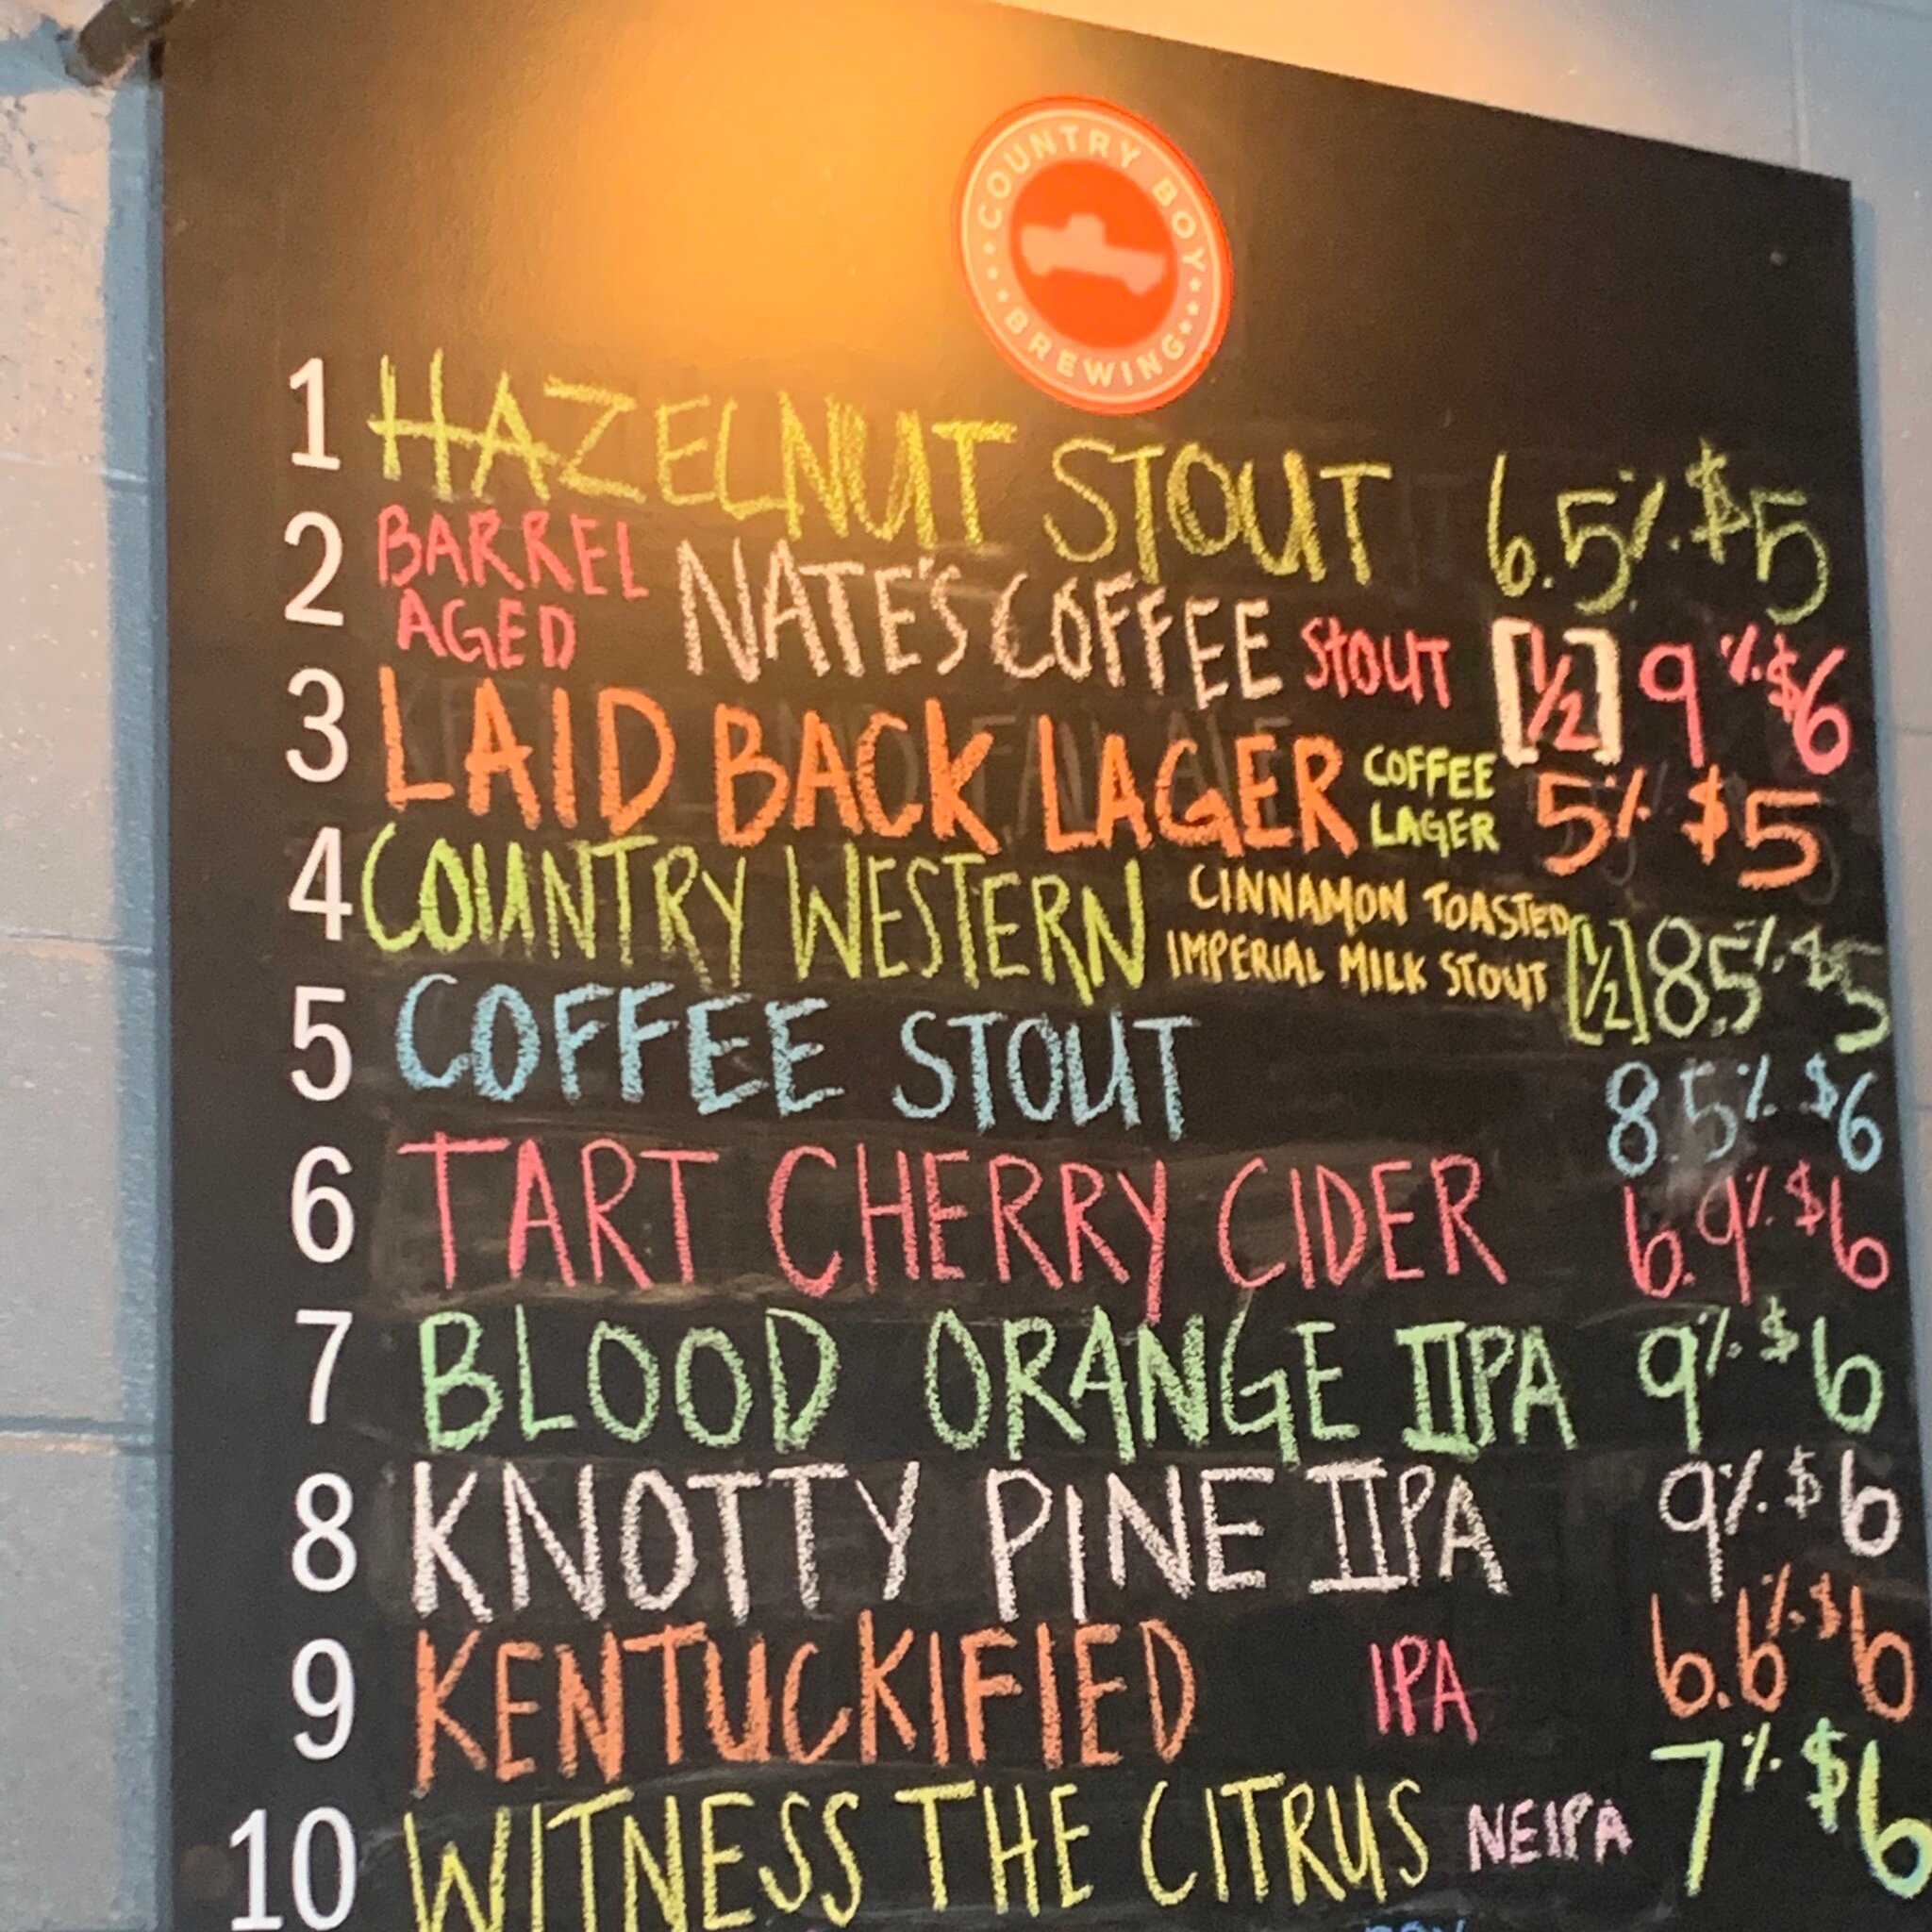 COUNTRY BOY
BREWING
1 HAZELNUT STOUT 6.5% $5
2 BARREL AGED NATE'S COFFEE STOUT [1/2] 9% $6
3 LAID BACK LAGER COFFEE LAGER 5% $5
4 COUNTRY WESTERN CINNAMON TOASTED IMPERIAL MILK STOUT [1/2] 8.5% $5
5 COFFEE STOUT 8.5% $6
6 TART CHERRY CIDER 6.9% $6
7 BLOOD ORANGE IIPA 9% $6
8 KNOTTY PINE IIPA 9% $6
9 KENTUCKIFIED IPA 6.6% $6
10 WITNESS THE CITRUS NEIPA 7% $6